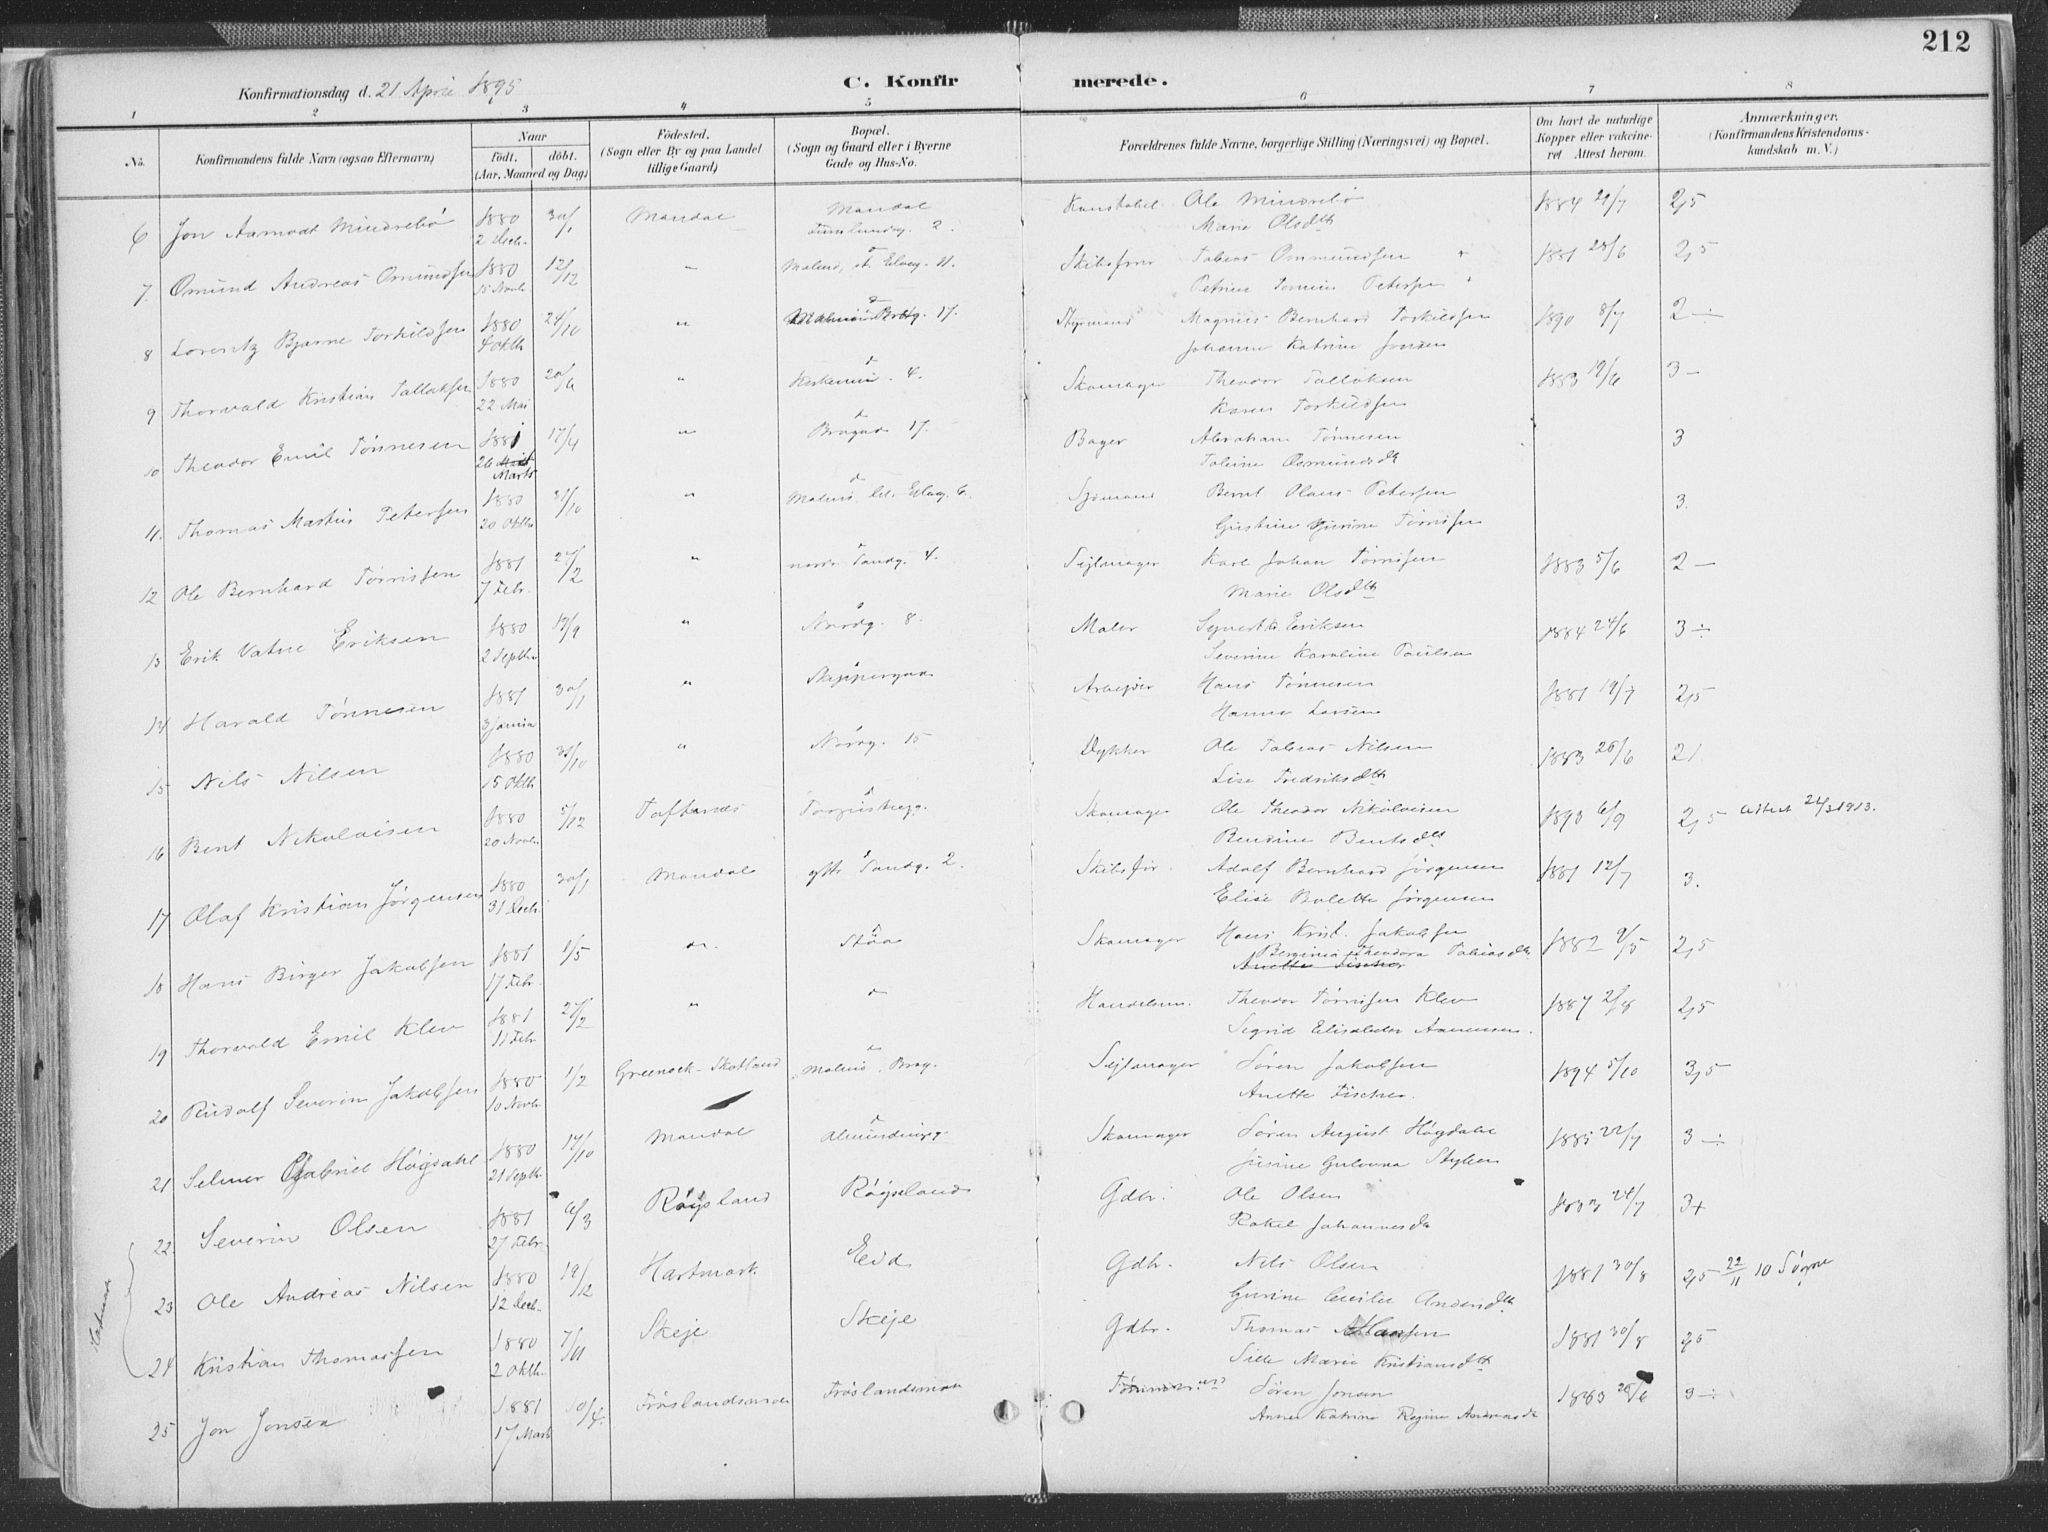 212
Konfirmationsdag d. 21 April 1895
C. Konfirmerede.
1 2 3 4 5 6 7 8
No. Konfirmandens fulde Navn (ogsaa Efternavn) Naar født, døbt. (Aar, Maaned og Dag) Fødested. (Sogn eller By og paa Landet tillige Gaard) Bopæl. (Sogn og Gaard eller i Byerne Gade og Hus-No. Forældrenes fulde Navne, borgerlige Stilling (Næringsvei) og Bopæl. Om havt de naturlige Kopper eller vakcineret Attest herom. Anmærkninger. (Konfirmandens Kristendomskundskab m. V.)
6 Jon Aamodt Mindrebø 1880 2 Decb. 30/1 Mandal Mandal 2. Konstabel Ole Mindrebø 1884 21/7 2,5
Marie Olsdtr
7. Omund Andreas Omundsen 1880 15 Novbr. 12/12 " Malmø, st. Elveg. 21. Skibsfører Tobias Ommundsen 1881 28/6 2,5
Petrine Tomine Petersen
8 Lorentz Bjarne Torkildsen 1880 4 Oktb. 24/10 " 17. Styrmand Magnus Bernhard Torkildsen 1890 8/7 2 ÷
Johanne Katrine Jonsen
9 Thorvald Kristian Tallaksen 1880 22 Mai 20/6 " 4. Skomager Theodor Tallaksen 1883 19/6 3 –
Karen Torkildsen
10 Theodor Emil Tønnesen 1881 26 Marts 17/4 " Brogad. 17. Bager Abraham Tønnesen 3
Tobine Osmundsdtr
11. Thomas Martin Petersen 1880 20 Oktb. 31/10 " Malmø, lil. Elveg. 6. Sjømand Bernt Olaus Petersen 3.
Gustine Gurine Tørrisen
12 Ole Bernhard Tørrissen 1881 7 Febr. 27/2 " nordr. Sandg. 4. Sejlmager Karl Johan Tørrisen 1883 5/6 2 –
Marie Olsdtr
13 Erik Vatne Eriksen 1880 2 Septb. 19/9 " Nordg. 8. Maler Syvert Eriksen 1884 24/6 3 ÷
Severine Karoline Paulsen
14 Harald Tønnesen 1881 3 Januar 30/1 " Skippergad. Arbejder Hans Tønnesen 1881 19/7 2,5
Hanne Larsen
15 Nils Nilsen 1880 15 Oktb. 31/10 " Nordg. 15 Dykker Ole Tobias Nilsen 1883 26/6 21
Lise Fredriksdtr
16 Bent Nikolaisen 1880 20 Novbr. 5/12 Toftenes Skomager Ole Theodor Nikolaisen 1893 6/9 2,5 Attest 24/3 1913.
Bendine Bentsdtr
17 Olaf Kristian Jørgensen 1880 31 Decb. 30/1 Mandal Sandg. 2. Skibsfør. Adolf Bernhard Jørgensen 1881 12/7 3.
Elise Bolette Jørgensen
18 Hans Birger Jakobsen 1881 17 Febr. 1/5 " Skomager Hans Krist. Jakobsen 1882 9/5 2,5
Berginia Theodora Tobiasdtr
Anette Fischer
19 Thorvald Emil Klev 1881 11 Febr 27/2 " Handelsm. Theodor Tørrisen Klev 1887 2/8 2,5
Sigrid Elisabeth Aanensen.
20 Rudolf Severin Jakobsen 1880 10 Novbr. 1/2 Greenock – Skotland Malmø, Brog. Sejlmager Søren Jakobsen 1894 5/10 3,5
Anette Fischer.
21 Selmer Gabriel Høgdahl 1880 21 Septb. 17/10 Mandal Skomager Søren August Høgdahl 1885 22/7 3 ÷
22. Severin Olsen 1881 27 Febr. 6/3 Røjsland Røjsland Gdbr. Ole Olsen 1883 24/7 3+
Rakel Johannesdtr
Hartmark
23 Ole Andreas Nilsen 1880 12 Decb. 19/12 Hartmark Eid Gdbr. Nils Olsen 1881 30/8 2,5 22/11 10 Søgne
Gurine Cecilie Andersdtr
24 Kristian Thomassen 1880 2 Oktb. 7/11 Skeje Skeje Gdbr. Thomas 1881 30/8 2,5
Sille Marie Kristiansdtr
25 Jon Jonsen 1881 17 Marts 10/4 Frøslandsmoen Frøslandsmoen Tømmermand Søren Jonsen 1883 26/6 3 ÷
Anne Katrine Regine Andreasdtr